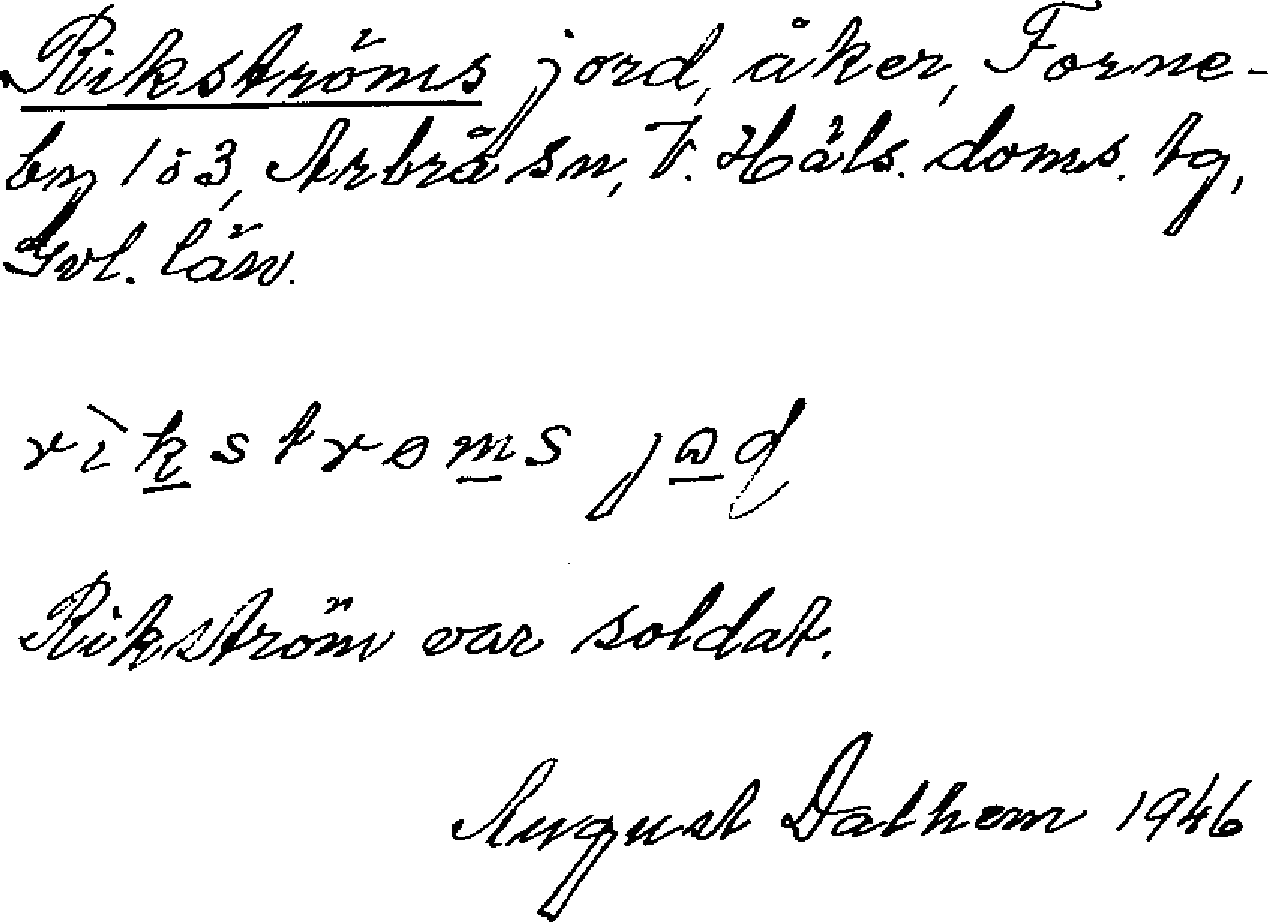 Rikströms jord, åker, Forne-
by 1 o 3, Arbrå sn, V. Häls. doms. tg,
Gvl. län.
Rikström var soldat.
August Dathem 1946